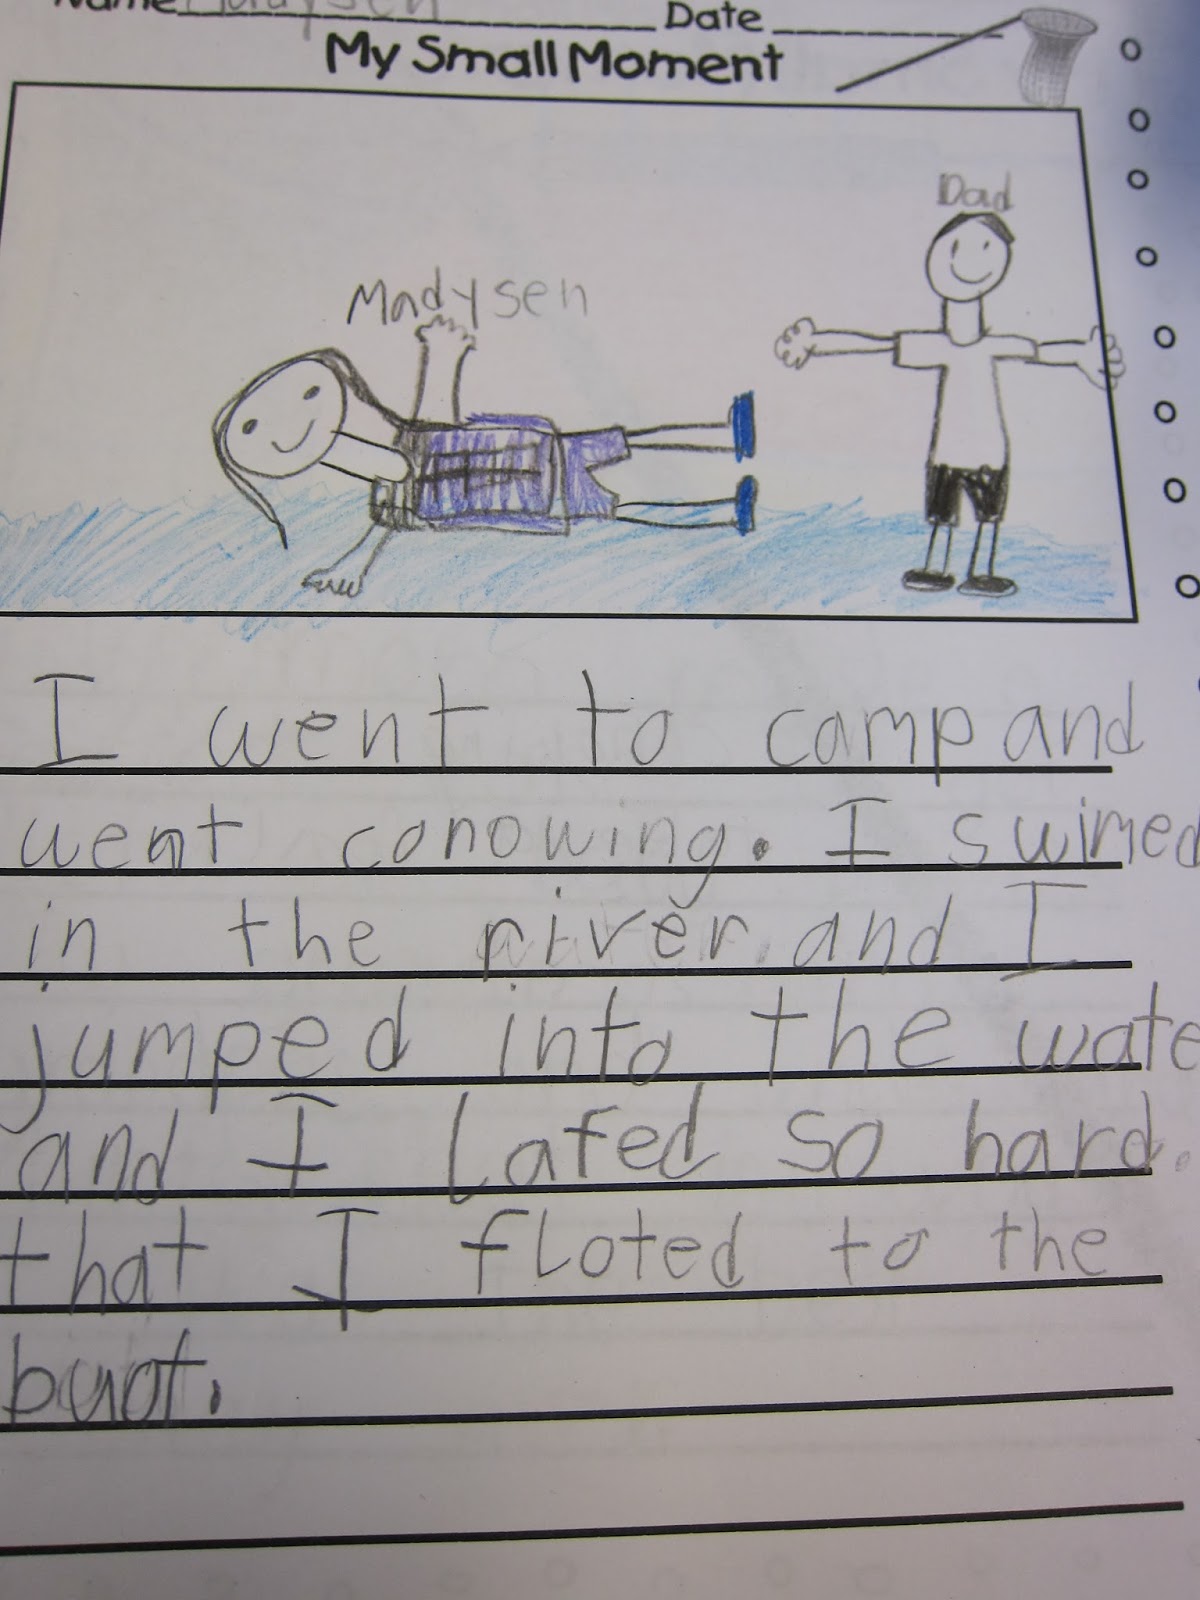 Name Madysen Date
My Small Moment
Dad
Madysen
I went to camp and
went conowing. I swimed
in the river and I
jumped into the wate
and I Lafed so hard.
that I floted to the